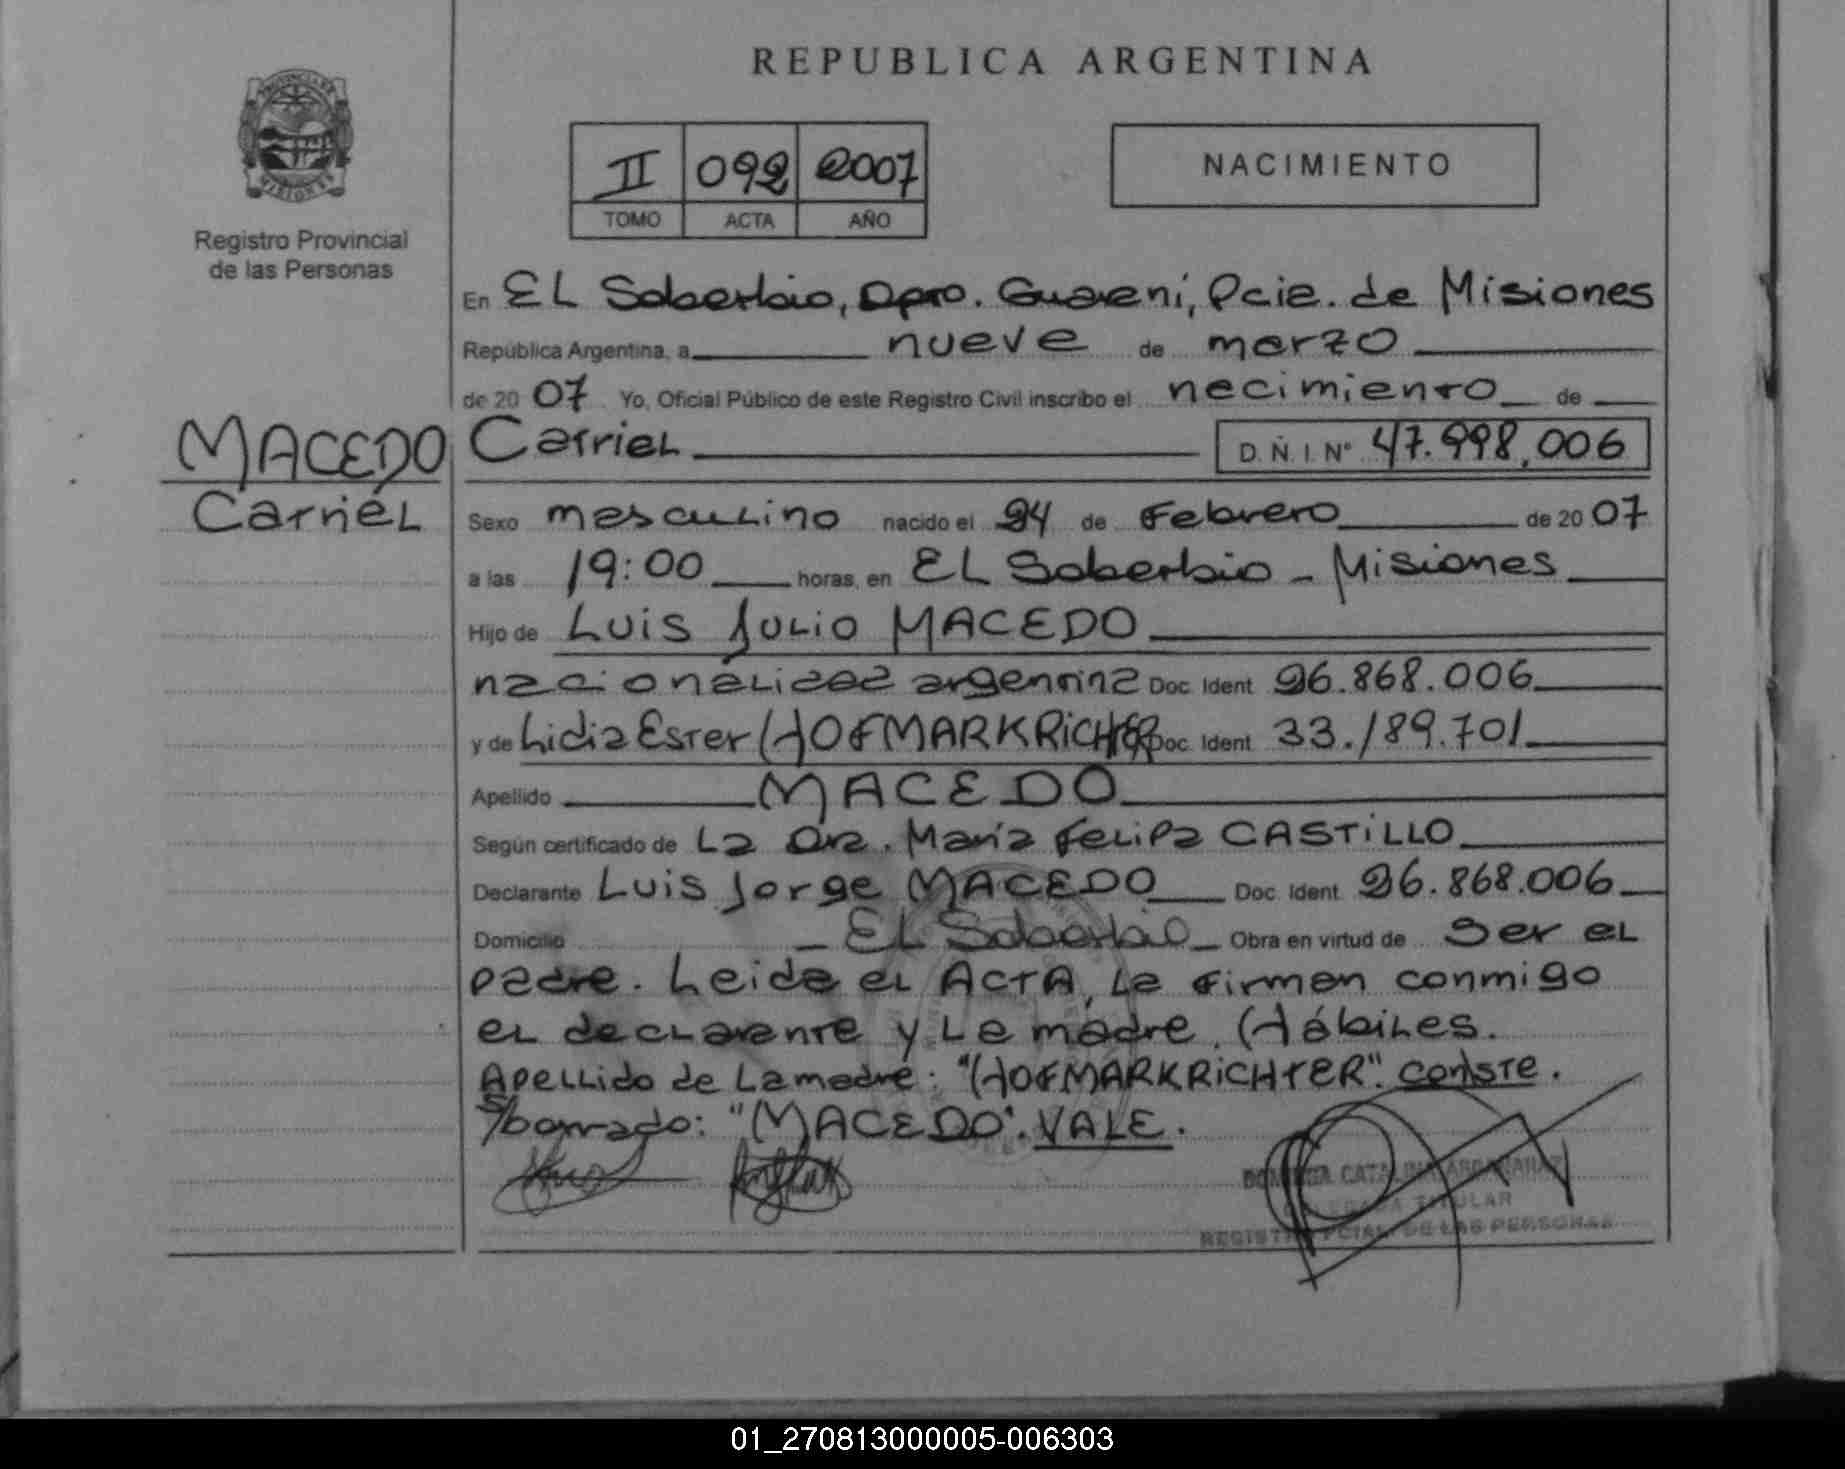 REPUBLICA ARGENTINA
PROVINCIA DE
MISIONES
Registro Provincial
de las Personas
II 092 2007
TOMO ACTA AÑO
NACIMIENTO
En EL Soberbio, Dpto. Guaraní, Pcia. de Misiones
República Argentina, a nueve de marzo
de 20 07 Yo, Oficial Público de este Registro Civil inscribo el nacimiento de
MACEDO
Carriel
Carriel D. N. I. Nº 47.998.006
Sexo masculino nacido el 24 de Febrero de 20 07
a las 19:00 horas, en EL Soberbio - Misiones
Hijo de Luis Julio MACEDO
nacionalidad argentina Doc. Ident. 26.868.006
y de Lidia Ester HOFMARKRICHTER Doc. Ident. 33.189.701
Apellido MACEDO
Según certificado de La Dra. María Felipa CASTILLO
Declarante Luis Jorge MACEDO Doc. Ident. 26.868.006
Domicilio EL Soberbio Obra en virtud de Ser el
padre. Leida el ACTA, La firman conmigo
el declarante y La madre. Hábiles.
Apellido de La madre: "HOFMARKRICHTER". conste.
s/borrado: "MACEDO". VALE.
CATALINA
TITULAR
REGISTRO PCIAL. DE LAS PERSONAS
01_270813000005-006303